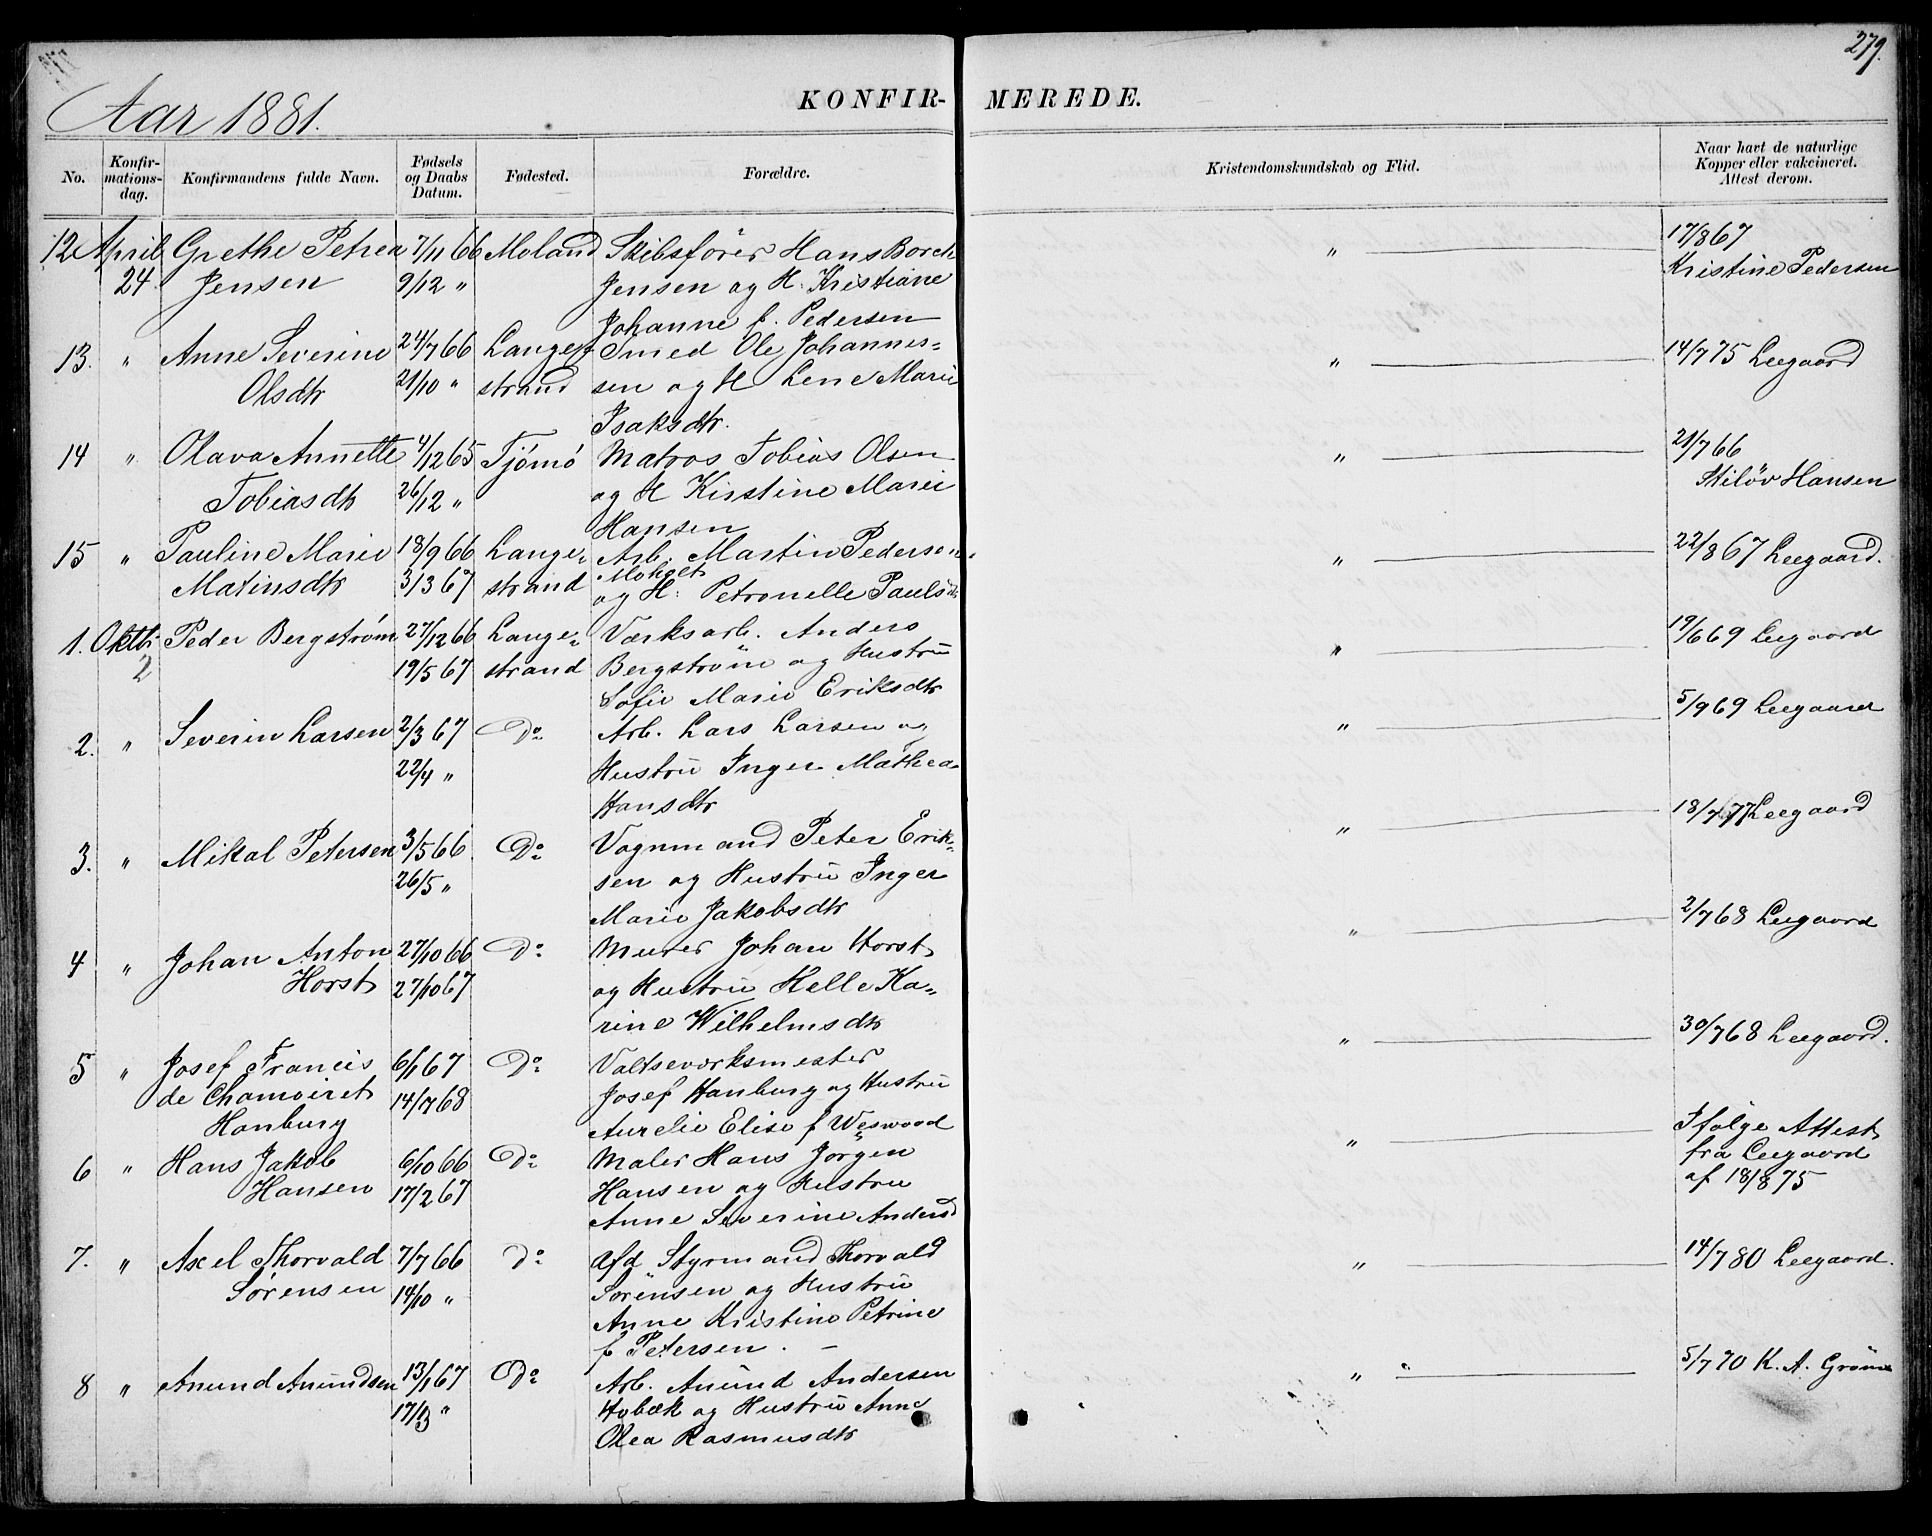 279.
Aar 1881.
KONFIR- MEREDE.
No. Konfir-mations-dag. Konfirmandens fulde Navn. Fødsels og Daabs Datum. Fødested. Forældre. Kristendomskundskab og Flid. Naar havt de naturlige Kopper eller vakcineret. Attest derom.
12 April Grethe Petrea 7/11 66 Moland Skibsfører Hans Borch „ 17/8 67
24. Jensen 9/12 „ Jensen og H. Kristiane Kristine Pedersen
Johanne f. Pedersen
13. „ Anne Severine 24/7 66 Lange- Smed Ole Johannes- „ 14/7 75 Leegaard
Olsdtr 21/10 „ strand sen og H Lene Marie
Isaksdtr.
14 „ Olava Annette 4/12 65 Tjömö Matros Tobias Olsen „ 21/7 66
Tobiasdtr 26/12 „ og H Kirstine Marie Skilöv Hansen
Hansen
15 „ Pauline Marie 18/9 66 Lange- Arb. Martin Pedersen „ 22/8 67 Leegaard.
Moholt
Matinsdtr 31/3 67 strand og H: Petronelle Paulsdtr
1. Oktbr Peder Bergström 27/12 66 Lange- Værksarb. Anders „ 19/6 69 Leegaard
2 19/5 67 strand Bergström og Hustru
Sofie Marie Eriksdtr
2. „ Severin Larsen 2/3 67 Do Arb. Lars Larsen og „ 5/9 69 Leegaard
22/4 „ Hustru Inger Mathea
Hansdtr
3. „ Mikal Petersen 3/5 66 Do Vognmand Peter Erik- „ 18/7 77 Leegaard
26/5 „ sen og Hustru Inger
Marie Jakobsdtr
4 „ Johan Anton 27/10 66 Do Murer Johan Horst „ 2/7 68 Leegaard
Horst 27/10 67 og Hustru Helle Ka-
rine Wilhelmsdtr
5 „ Josef Francis 6/1 67 Do Valtseværksmester „ 30/7 68 Leegaard.
de Chamoiret 14/7 68 Josef Hanburg og Hustru
Hanburg Aurelie Elise f Weswood
6 „ Hans Jakob 6/10 66 Do Maler Hans Jørgen „ Ifølge Attest
Hansen 17/2 67 Hansen og Hustru fra Leegaard
Anne Severine Andersd af 18/8 75
7. „ Axel Thorvald 7/7 66 Do Afd Styrmand Thorvald „ 14/7 80 Leegaard.
Sørensen 14/10 „ Sørensen og Hustru
Anne Kristine Petrine
f Petersen. –
8 „ Anund Anundsen 13/1 67 Do Arb. Anund Andersen „ 5/7 70 K. A. Gröm
17/3 „ Hobæk og Hustru Anne
Olea Rasmusdtr